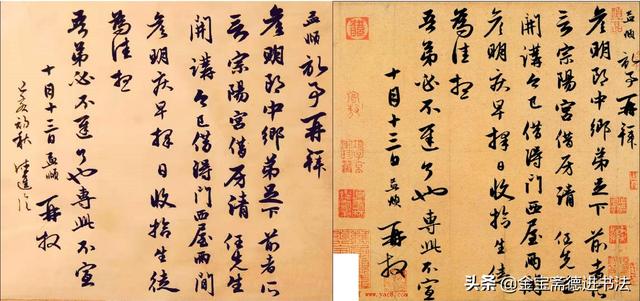 孟頫 再拜
彦明郎中鄉弟足下前者所
言宗陽宫借房請任先生
開講今已借得門西屋兩間
彦明疾早擇日收拾生徒
為佳想
吾弟必不遲了也專此不宣
十月十三日孟頫再拜
己亥初秋德進臨
孟頫 再拜
彦明郎中鄉弟足下前者所
言宗陽宫借房請任先生
開講今已借得門西屋兩間
彦明疾早擇日收拾生徒
為佳想
吾弟必不遲了也專此不宣
十月十三日孟頫再拜
www.yac8.com
头条 @金宝斋德进书法